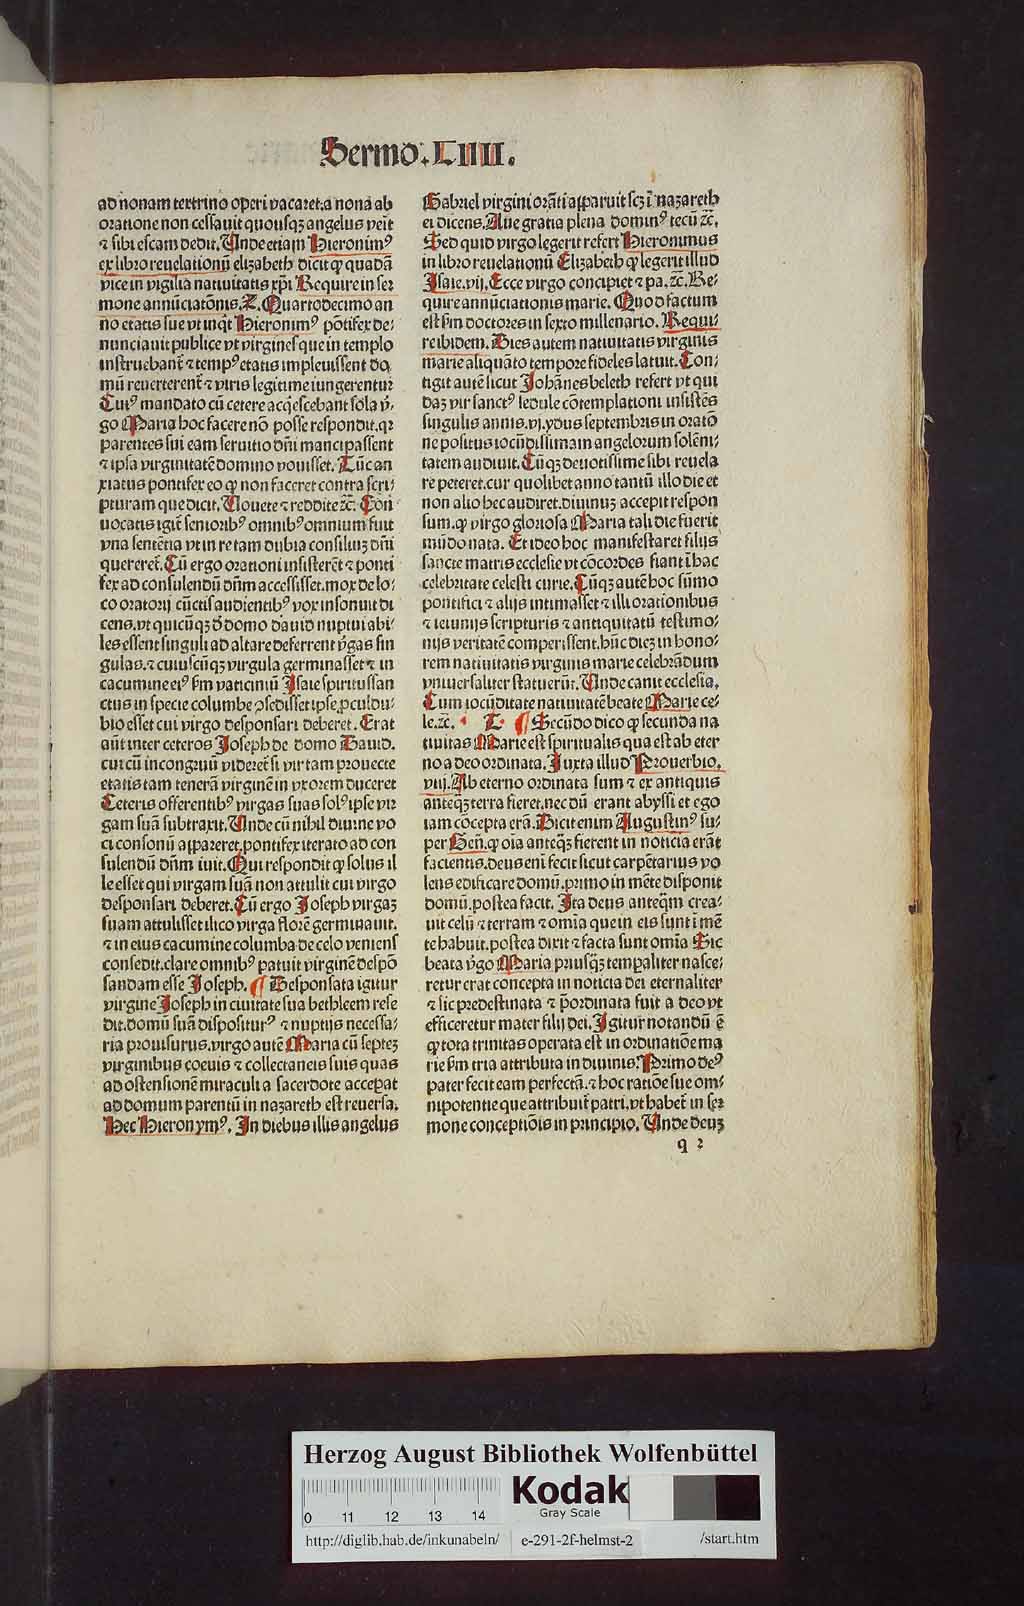 Sermo.LIIII.
ad nonam textrino operi vacaret.a nona ab
oratione non cessauit quousqz angelus veīt
⁊ sibi escam dedit. Unde etiam Hieronimꝰ
ex libro reuelationū elizabeth dicit ꝙ quadā
vice in vigilia natiuitatis xp̄i Require in ser
mone annūciatōnis. Quartodecimo an
no etatis sue vt inqͥt Hieronimꝰ pōtifex de⸗
nunciauit publice vt virgines que in templo
instruebant̄ ⁊ tempꝰ etatis impleuissent do
mū reuerterent̄ ⁊ viris legitime iungerentur
Cuiꝰ mandato cū cetere acq̄escebant sola v̓⸗
go Maria hoc facere nō posse respondit. qꝛ
parentes sui eam seruitio dn̄i mancipassent
⁊ ipsa virginitatē domino vouisset. Tūc an
xiatus pontifex eo ꝙ non faceret contra scri⸗
pturam que dicit. Uouete ⁊ reddite ⁊c̄. Con
uocatis igit̄ senioribꝰ omnibꝰ omnium fuit
vna sentētia vt in re tam dubia consiliuz dn̄i
quereret̄. Cū ergo orationi insisterēt ⁊ ponti
fex ad consulendū dn̄m accessisset. mox de lo⸗
co oratorij cūctis audientibꝰ vox insonuit di
cens. vt quicūqz d̄ domo dauid nuptui abi⸗
les essent singuli ad altare deferrent v̓gas sin
gulas. ⁊ cuiuscūqz virgula germinasset ⁊ in
cacumine eiꝰ ẜm vaticiniū Isaie spiritussan
ctus in specie columbe ꝯsedisset ipse proculdu⸗
bio esset cui virgo desponsari deberet. Erat
aūt inter ceteros Joseph de domo Dauid.
cui cū incongruū videret̄ si vir tam prouecte
etatis tam tenerā virginē in vxorem duceret
Ceteris offerentibꝰ virgas suas solꝰ ipse vir
gam suā subtraxit. Unde cū nihil diuine vo
ci consonū appareret. pontifex iterato ad con
sulendū dn̄m iuit. Qui respondit ꝙ solus il
le esset qui virgam suā non attulit cui virgo
desponsari deberet. Cū ergo Joseph virgaz
suam attulisset ilico virga florē germinauit.
⁊ in eius cacumine columba de celo veniens
consedit. clare omnibꝰ patuit virginē despō
sandam esse Joseph. ¶ Desponsata igitur
virgine Joseph in ciuitate sua bethleem rese
dit. domū suā dispositurꝰ ⁊ nuptijs necessa⸗
ria prouisurus. virgo autē Maria cū septez
virginibus coeuis ⁊ collectaneis suis quas
ad ostensionē miraculi a sacerdote accepat
ad domum parentū in nazareth est reuersa.
Hec Hieronymꝰ. In diebus illis angelus
Gabriel virgini orāti apparuit scz ī nazareth
ei dicens. Aue gratia plena dominꝰ tecū ⁊c̄.
Sed quid virgo legerit refert Hieronimus
in libro reuelationū Elizabeth ꝙ legerit illud
Isaie. vij. Ecce virgo concipiet ⁊ pa. ⁊c̄. Re⸗
quire annūciationis marie. Quod factum
est ẜm doctores in sexto millenario. Requi⸗
re ibidem. Dies autem natiuitatis virginis
marie aliquāto tempore fideles latuit. Con⸗
tigit autē sicut Johānes beleth refert vt qui
daz vir sanctꝰ sedule cōtemplationi insistēs
singulis annis. vj. ydus septembris in oratō
ne positus iocūdissimam angelorum solēni⸗
tatem audiuit. Cūqz deuotissime sibi reuela
re peteret. cur quolibet anno tantū illo die et
non alio hec audiret. diuinuz accepit respon
sum. ꝙ virgo gloriosa Maria tali die fuerit
mūdo nata. Et ideo hoc manifestaret filijs
sancte matris ecclesie vt cōcordes fiant ī hac
celebritate celesti curie. Cūqz autē hoc sūmo
pontifici ⁊ alijs intimasset ⁊ illi orationibus
⁊ ieiunijs scripturis ⁊ antiquitatū testimo⸗
nijs veritatē comperissent. hūc diez in hono⸗
rem natiuitatis virginis marie celebrādum
vniuersaliter statuerūt. Unde canit ecclesia.
Cum iocūditate natiuitatē beate Marie ce⸗
le. ⁊c̄. ¶ Secūdo dico ꝙ secunda na
tiuitas Marie est spiritualis qua est ab eter
no a deo ordinata. Juxta illud Prouerbio.
viij. Ab eterno ordinata sum ⁊ ex antiquis
anteqz terra fieret. nec dū erant abyssi et ego
iam cōcepta erā. Dicit enim Augustinꝰ su⸗
per Gen̄. ꝙ oīa anteqz fierent in noticia erāt
facientis. deus enī fecit sicut carpētarius vo
lens edificare domū. primo in mēte disponit
domū. postea facit. Ita deus anteqm̄ crea⸗
uit celū ⁊ terram ⁊ omīa que in eis sunt ī mē
te habuit. postea dixit ⁊ facta sunt omīa Sic
beata v̓go Maria priusqz temporaliter nasce⸗
retur erat concepta in noticia dei eternaliter
⁊ sic predestinata ⁊ p̄ordinata fuit a deo vt
efficeretur mater filij dei. Igitur notandū ē
ꝙ tota trinitas operata est in ordinatiōe ma
rie ẜm tria attributa in diuinis. Primo deꝰ
pater fecit eam perfectā. ⁊ hoc ratiōe sue om⸗
nipotentie que attribuit̄ patri. vt habet̄ in ser
mone conceptiōis in principio. Unde deuz
q 2
Herzog August Bibliothek Wolfenbüttel
0 11 12 13 14
Kodak
Gray Scale
http://diglib.hab.de/inkunabeln/ e-291-2f-helmst-2 /start.htm